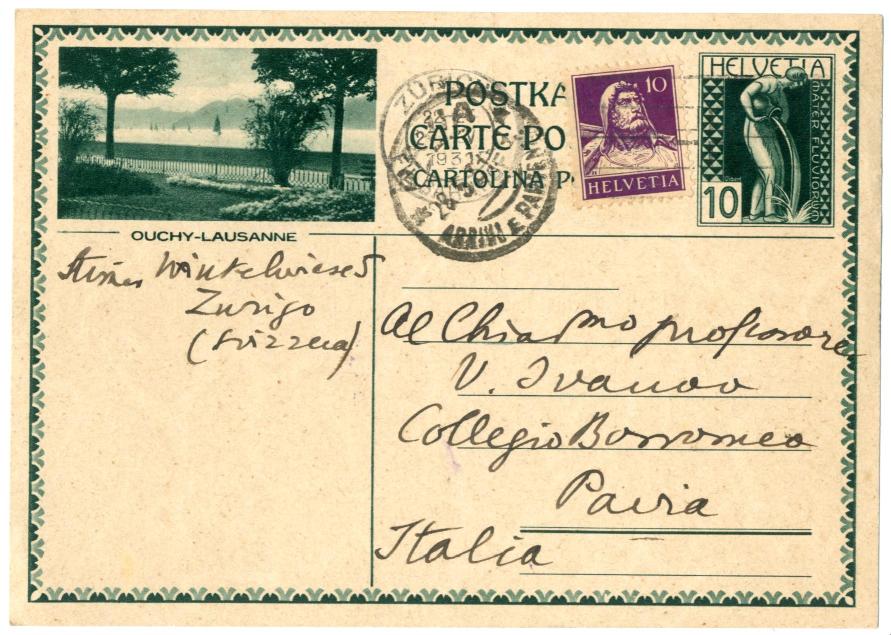 POSTKA
CARTE-PO
CARTOLINA P
10
HELVETIA
HELVETIA
MATER FLUVIORUM
10
ZÜRICH
1931
ARRIVI E PARTEN
OUCHY-LAUSANNE
Winkelwiese 5
Zurigo
(Svizzera)
Al Chiarmo professore
V. Ivanov
Collegio Borromeo
Pavia
Italia